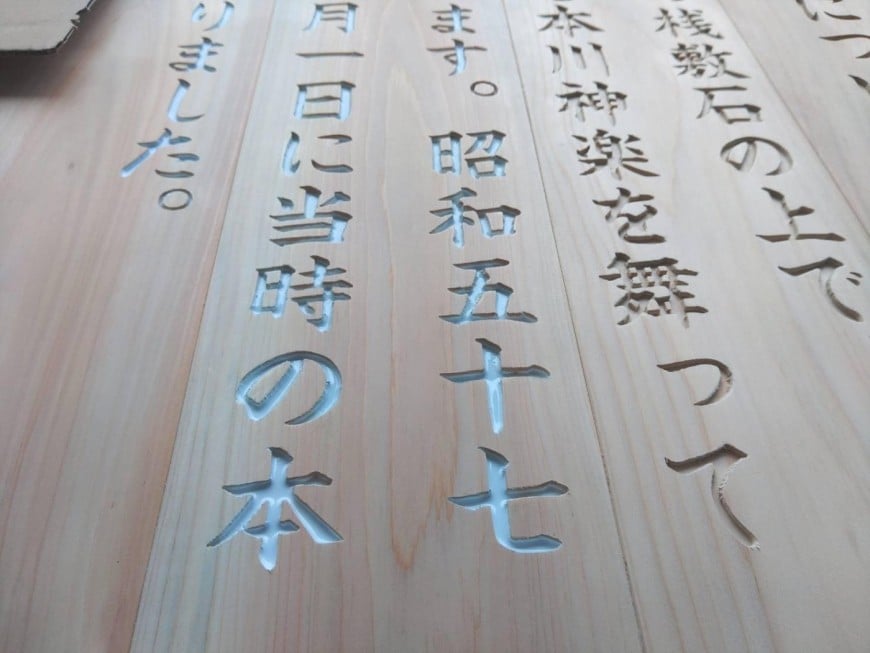 につ
桟敷石の上で
本川神楽を舞って
ます。昭和五十七
月一日に当時の本
りました。